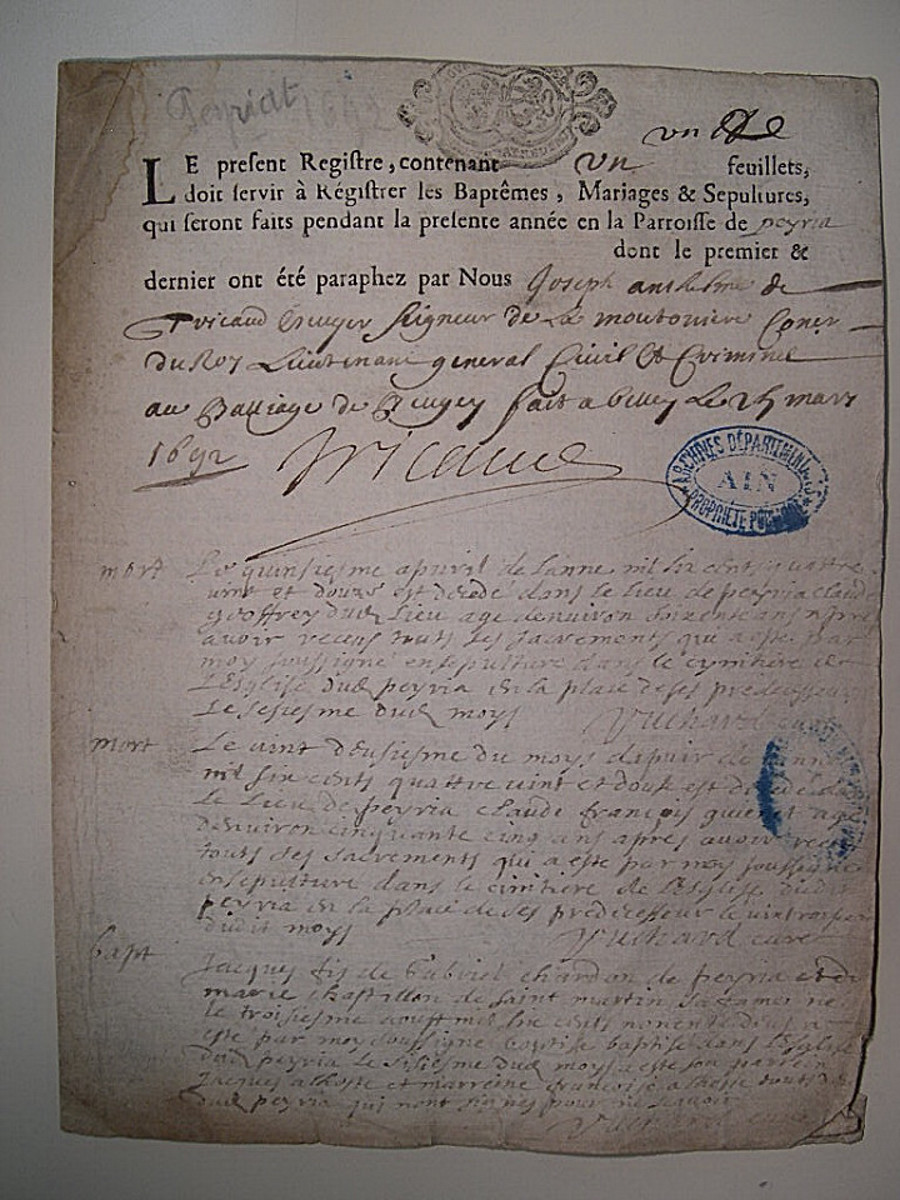 Peyriat 1692
un
LE present Registre, contenant un feuillets,
doit servir à Régistrer les Baptêmes, Mariages & Sepultures,
qui seront faits pendant la presente année en la Parroisse de peyria
dont le premier &
dernier ont été paraphez par Nous Joseph anthelme de
Tricaud Escuyer Seigneur de La
du Roy Lieutenant general Civil Et Criminel
au Balliage de Bugey fait a belley Le 25 mars
1692 Tricaud
ARCHIVES DÉPARTEMENTALES
AIN
PROPRIÉTÉ PUBLIQUE
mort Le quinsiesme apuril de lanne mil six cents quattre
uint et douze est decede dans le lieu de peyria claude
geoffrey dud Lieu age denuiron soixente ans apres
auoir receus touts les sacrements qui a este par
moy soussigne ensepulture dans le cymitiere de
LEsglise dud peyria en la place de ses predecesseurs
Le sesiesme dud moys Vuchard cure
mort Le uint deusiesme du moys dapuir de lanne
mil six cents quattre uint et douse est decede dans
Le Lieu de peyria claude françois age
denuiron cinquante cinq ans apres auoir receu
touts ses sacrements qui a este par moy soussigne
ensepulture dans le cimitiere de LEsglise dudit
peyria en la place de ses predecesseur le
dudit moys Vuchard cure
bapt Jacques fis de Gabriel chardon de peyria et de
marie chastillon de saint martin sa famer ne
Le troisiesme aoust mil six cents nonente deux a
este par moy soussigne baptise dans LEsglise
dud peyria Le sisiesme dud moys a este son parrein
Jacques alhoste et marreine francoise alhoste touts
dud peyria qui nont signes pour ne sçauoir
Vuchard cure